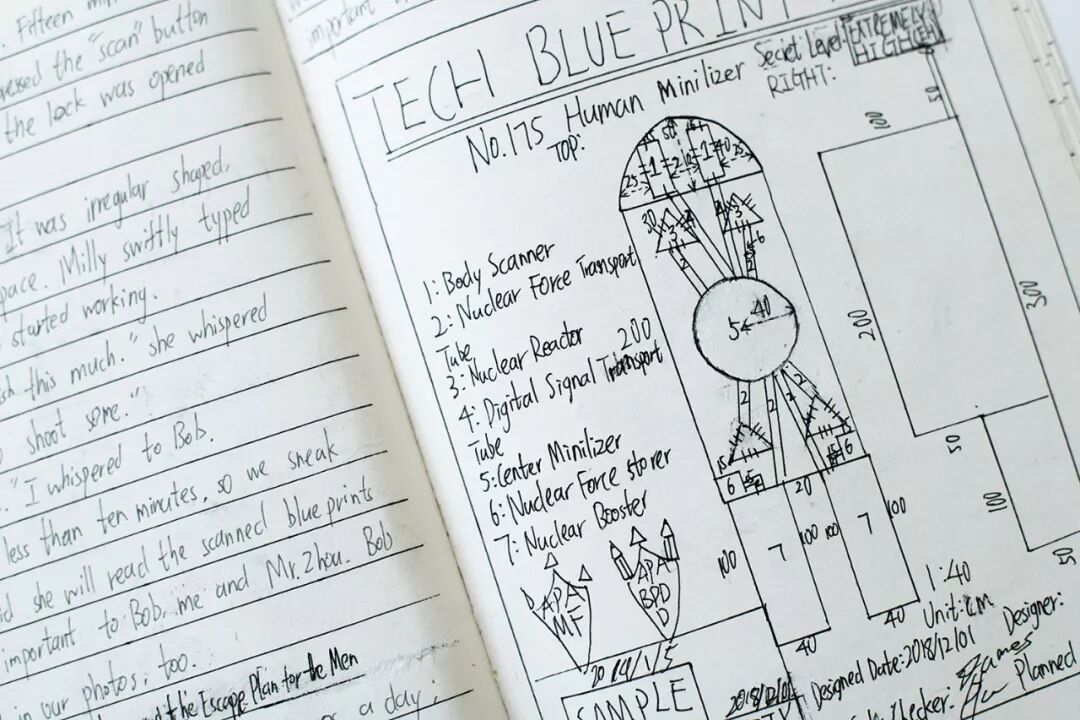 . Fifteen
pressed the "scan" button
the lock was opened
It was irregular shaped.
pace. Milly swiftly typed
started working.
this much." she whispered
shoot some."
"I whispered to Bob.
less than ten minutes, so we sneak
she will read the scanned blueprints
important to Bob, me and Mr.Zhou. Bob
in our photos, too.
the Escape Plan for the Men
a day;
important
TECH BLUE PRINT
No.175 Human Minilizer
Secret Level: EXTREMELY
HIGH(EH)
TOP:
RIGHT:
1: Body Scanner
2: Nuclear Force Transport
Tube
3: Nuclear Reactor
4: Digital Signal Transport
Tube
5: Center Minilizer
6: Nuclear Force storer
7: Nuclear Booster
200
30
5
40
6
6
20
7
7
100
100
100
100
40
40
100
50
200
300
50
100
50
APA
MF
APA
BPD
D
1:40
Unit: cm
Designed Date: 2018/12/01
Designer:
James
Planned
SAMPLE
2018/12/01